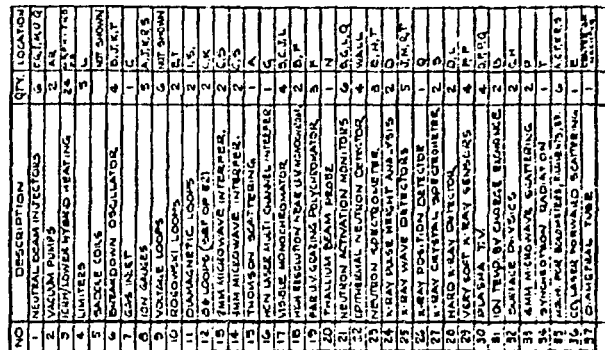 NO DESCRIPTION QTY. LOCATION
1 NEUTRAL BEAM INJECTORS 6
2 VACUUM PUMPS 2 AR
3 ICRH/LOWER HYBRID HEATING 24
4 LIMITERS 5 L
5 SADDLE COILS NOT SHOWN
6 BREAKDOWN OSCILLATOR 4 D,J,K,T
7 GAS INLET 1 C
8 ION GAUGES 5 A,J,K,R,S
9 VOLTAGE LOOPS 6 NOT SHOWN
10 ROGOWSKI LOOPS 2 E,T
11 DIAMAGNETIC LOOPS 2 I,S
12 LOOPS (SET OF 2) 2 C,K
13 2MM MICROWAVE INTERFER. 2 C,S
14 4MM MICROWAVE INTERFER. 2 C,S
15 THOMSON SCATTERING 1 A
16 HCN LASER MULTI CHANNEL INTERFER 1 G
17 VISIBLE MONOCHROMATOR 4
18 HIGH RESOLUTION NEAR UV MONOCHROM 2
19 FAR UV GRATING POLYCHROMATOR 3
20 THALLIUM BEAM PROBE 1 N
21 NEUTRON ACTIVATION MONITORS 6
22 EPITHERMAL NEUTRON DETECTOR 4 WALL
23 NEUTRON SPECTROMETER 8
24 X-RAY PULSE HEIGHT ANALYSIS 2 D
25 X-RAY WAVE DETECTORS 5
26 X-RAY POSITION DETECTOR 1 Q
27 X-RAY CRYSTAL SPECTROMETER 2 S
28 HARD X-RAY DETECTOR 2 D,L
29 VERY SOFT X-RAY SENSORS 4
30 PLASMA T.V. 4
31 ION TEMP. BY CHARGE EXCHANGE 2 B
32 SURFACE ANALYSIS 2 C,H
33 4MM MICROWAVE SCATTERING 2 P
34 SYNCHROTRON RADIATION 1 T
35 6
36 CO2 LASER FORWARD SCATTERING 1 E
37 DIAGONAL TUBE 1